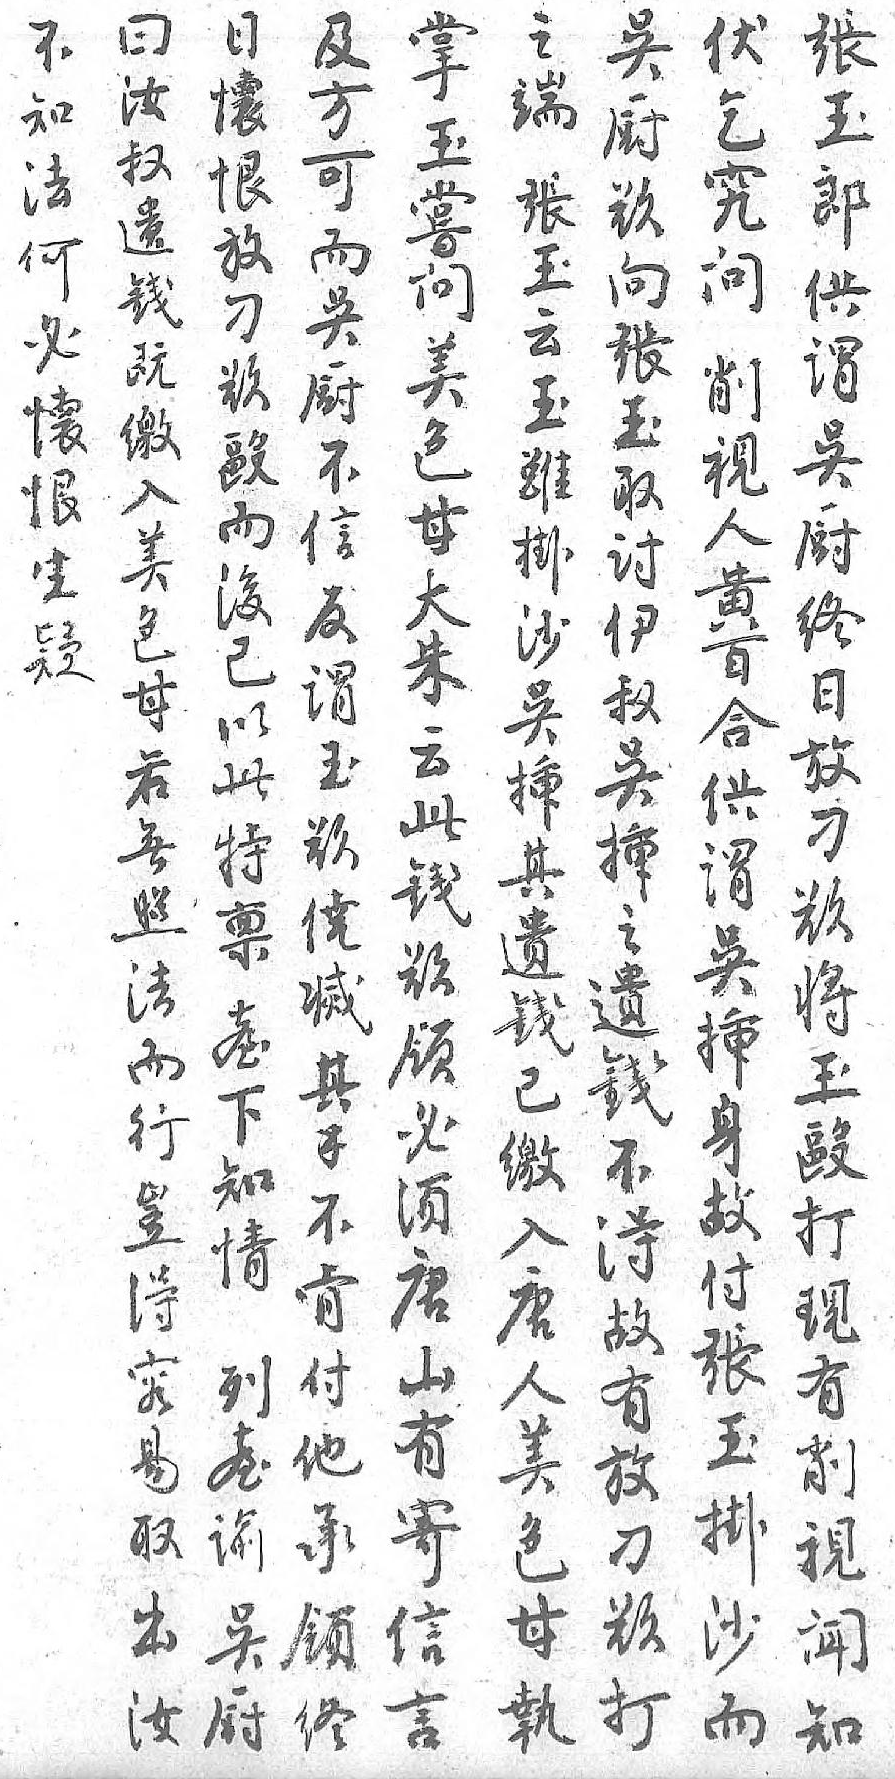 張玉郎供謂吳厨終日放刁欲將玉毆打現有削視聞知
伏乞究問　削視人黃百合供謂吳揷身故付張玉掛沙而
吳厨欲向張玉取討伊叔吳揷之遺錢不得故有放刁欲打
之端　張玉云玉雖掛沙吳揷其遺錢已繳入唐人美色甘執
掌玉嘗问美色甘大朱云此錢欲領必須唐山有寄信言
及方可而吳厨不信反謂玉欲侥減其錢不肯付他承領終
日懷恨放刁欲毆而後已以此特禀臺下知情　列臺諭吳厨
曰汝叔遺錢既繳入美色甘若無照法而行豈得容易取出汝
不知法何必懷恨生疑